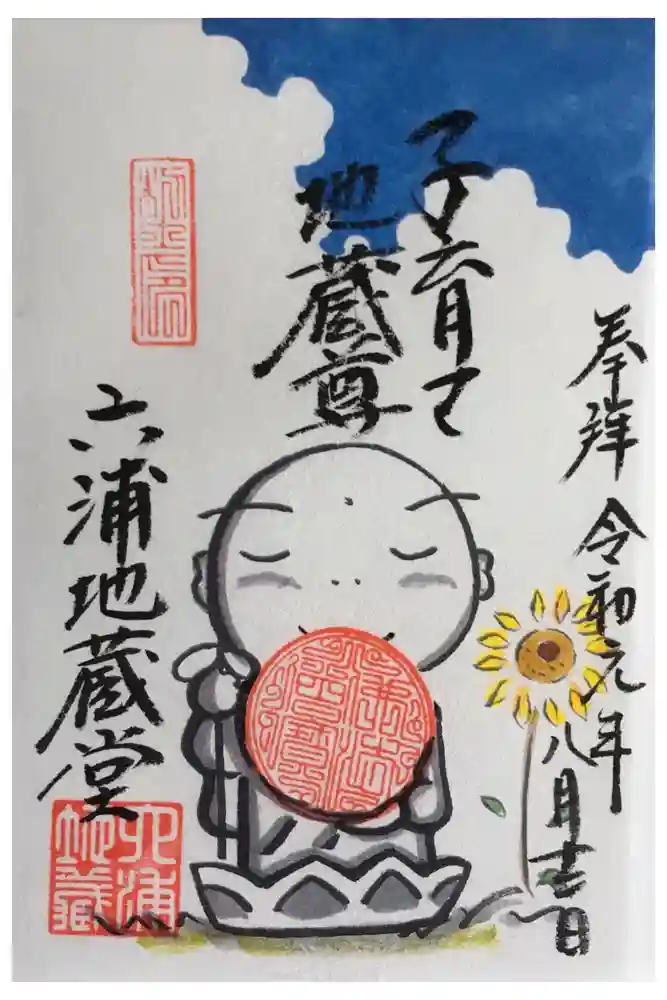 奉拝 令和元年
八月
子育て
地蔵尊
六浦地蔵堂
六浦
地蔵